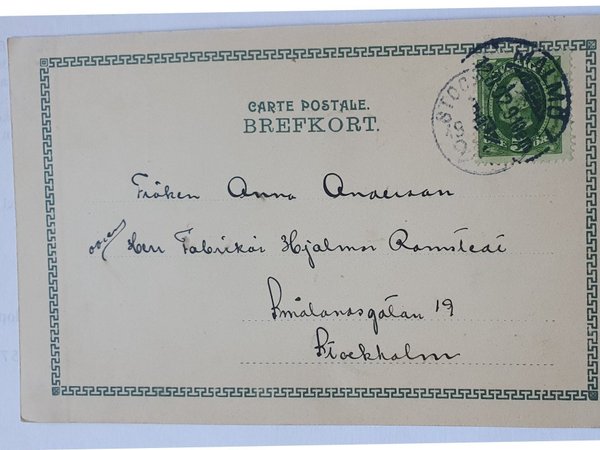 CARTE POSTALE.
BREFKORT.
MALMÖ
Fröken Anna Anderson
Herr Fabrikör Hjalmar Ramstedt
Smålandsgatan 19
Stockholm